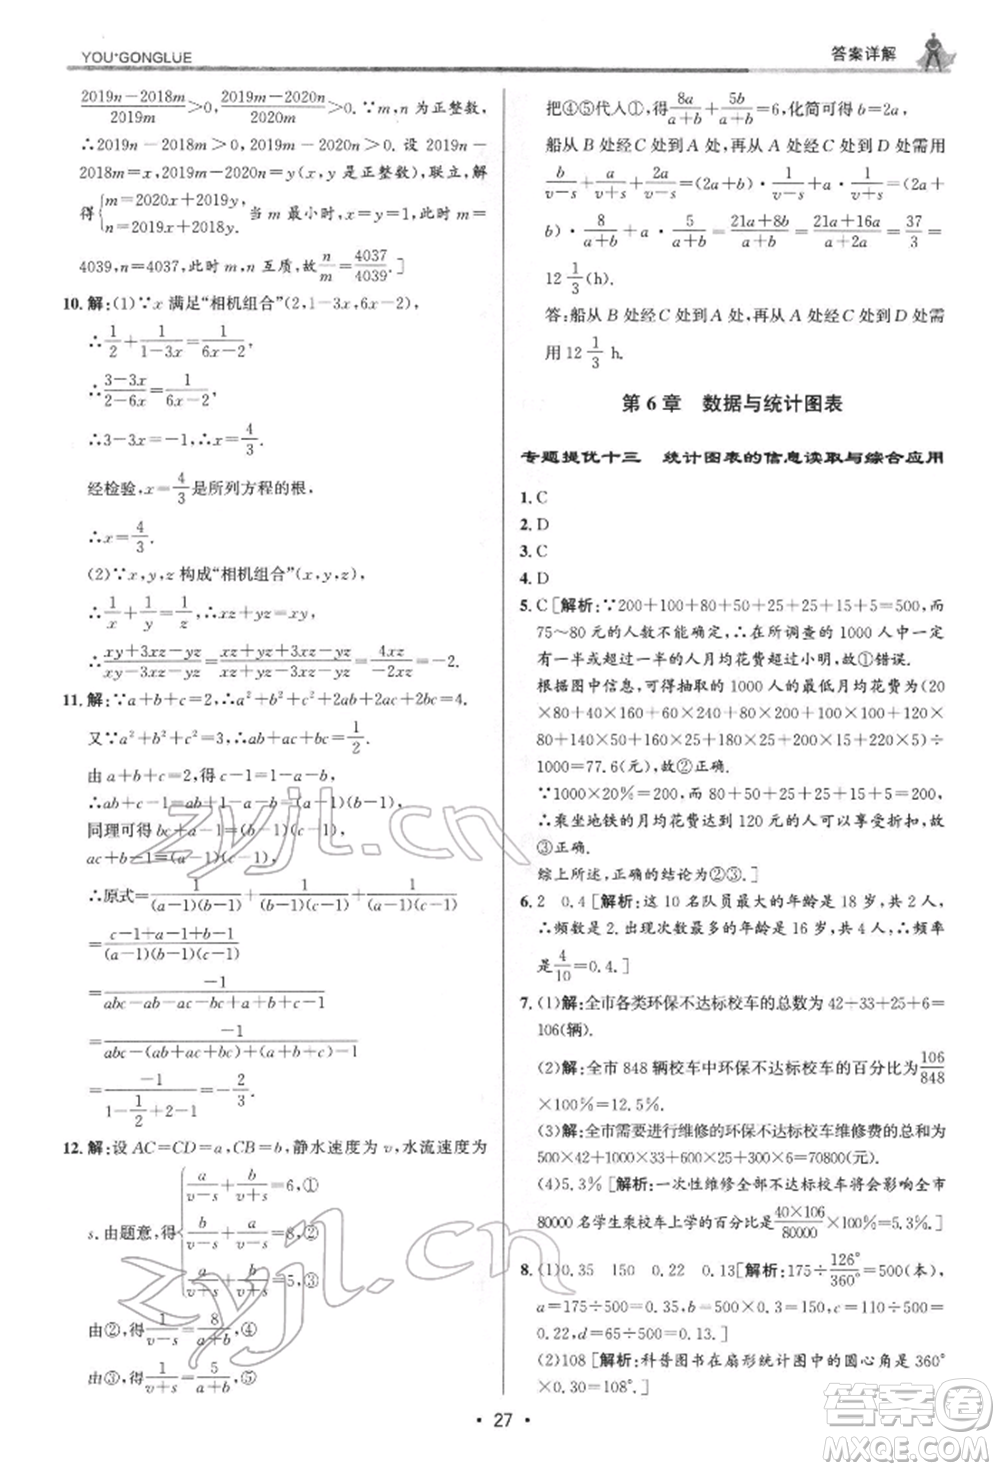 YOU⁺GONGLUE
答案详解
(2019n-2018m)/2019m>0,(2019m-2020n)/2020m>0.∵m,n为正整数,
∴2019n-2018m>0,2019m-2020n>0.设2019n-
2018m=x,2019m-2020n=y(x,y是正整数),联立,解
得{m=2020x+2019y, n=2019x+2018y. 当m最小时,x=1,y=1,此时m=
4039,n=4037,此时m,n互质,故n/m=4037/4039.]
10.解:(1)∵x满足“相机组合”(2,1-3x,6x-2),
∴1/2+1/(1-3x)=1/(6x-2),
∴(3-3x)/(2-6x)=1/(6x-2),
∴3-3x=-1,∴x=4/3.
经检验,x=4/3是所列方程的根,
∴x=4/3.
(2)∵x,y,z构成“相机组合”(x,y,z),
∴1/x+1/y=1/z,∴xz+yz=xy,
∴(xy+3xz-yz)/(xy-xz+yz)=(xz+yz+3xz-yz)/(xz+yz-xz+yz)... 
11.解:∵a+b+c=2,∴a²+b²+c²+2ab+2ac+2bc=4.
又∵a²+b²+c²=3,∴ab+ac+bc=1/2.
由a+b+c=2,得c-1=1-a-b,
∴ab+c-1=(a-1)(b-1).
同理可得bc+a-1=(b-1)(c-1),
ac+b-1=(a-1)(c-1).
∴原式=1/((a-1)(b-1))+1/((b-1)(c-1))+1/((a-1)(c-1))
=(c-1+a-1+b-1)/((a-1)(b-1)(c-1))
=-1/(abc-ab-ac-bc+a+b+c-1)
=-1/(abc-(ab+ac+bc)+(a+b+c)-1)
12.解:设AC=CD=a,CB=b,静水速度为v,水流速度为
s.由题意,得{a/(v-s)+b/(v+s)=6,① b/(v-s)+a/(v+s)=8,② ③
由②,得1/(v-s)=8/(a+b),④
由③,得1/(v+s)=5/(a+b),⑤
把④⑤代人①,得8a/(a+b)+5b/(a+b)=6,化简可得b=2a,
船从B处经C处到A处,再从A处经C处到D处需用
b/(v-s)+a/(v+s)+2a/(v-s)=(2a+b)·1/(v-s)+a·1/(v+s)=(2a+
b)·8/(a+b)+a·5/(a+b)=(21a+8b)/(a+b)=(21a+16a)/(a+2a)=37/3=
12 1/3(h).
答:船从B处经C处到A处,再从A处经C处到D处需
用12 1/3 h.
第6章 数据与统计图表
专题提优十三 统计图表的信息读取与综合应用
1.C
2.D
3.C
4.D
5.C[解析:∵200+100+80+50+25+25+15+5=500,而
75~80元的人数不能确定,∴在所调查的1000人中一
定有一半或超过一半的人月均花费超过小明,故①错误.
根据图中信息,可得抽取的1000人的月均花费为(20
1000=77.6(元),故②正确.
∵1000×20%=200,而80+50+25+25+15+5=200,
∴乘坐地铁的月均花费达到120元的人可享受折扣,故
③正确.
综上所述,正确的结论为②③.]
6.2 0.4[解析:这10名队员最大的年龄是18岁,共2人,
∴频数是2.∵出现次数最多的年龄是16岁,共4次,∴频率
是4/10=0.4.]
7.(1)解:全市各类环保不达标校车的总数为42+33+25+6=
106(辆).
(2)解:全市848辆校车中环保不达标校车的百分比为106/848
×100%=12.5%.
(3)解:全市需要进行维修的环保不达标校车维修费的总和为
500×42+1000×33+500×25+1000×... 
(4)5.3%[解析:一次性维修全部不达标校车将会影响全市
80000名学生乘校车上学的百分比为(40×106)/80000×100%=5.3%.]
8.(1)0.35 150 0.22 0.13[解析:175÷126°/360°=500(本),
a=175÷500=0.35,b=500×0.30=150,c=110÷500=
0.22,d=65÷500=0.13.]
(2)108[解析:科普图书在扇形统计图中的圆心角是360°
×0.30=108°.]
27
zyjl.cn
zyjl.cn
答案卷
MXQE.COM